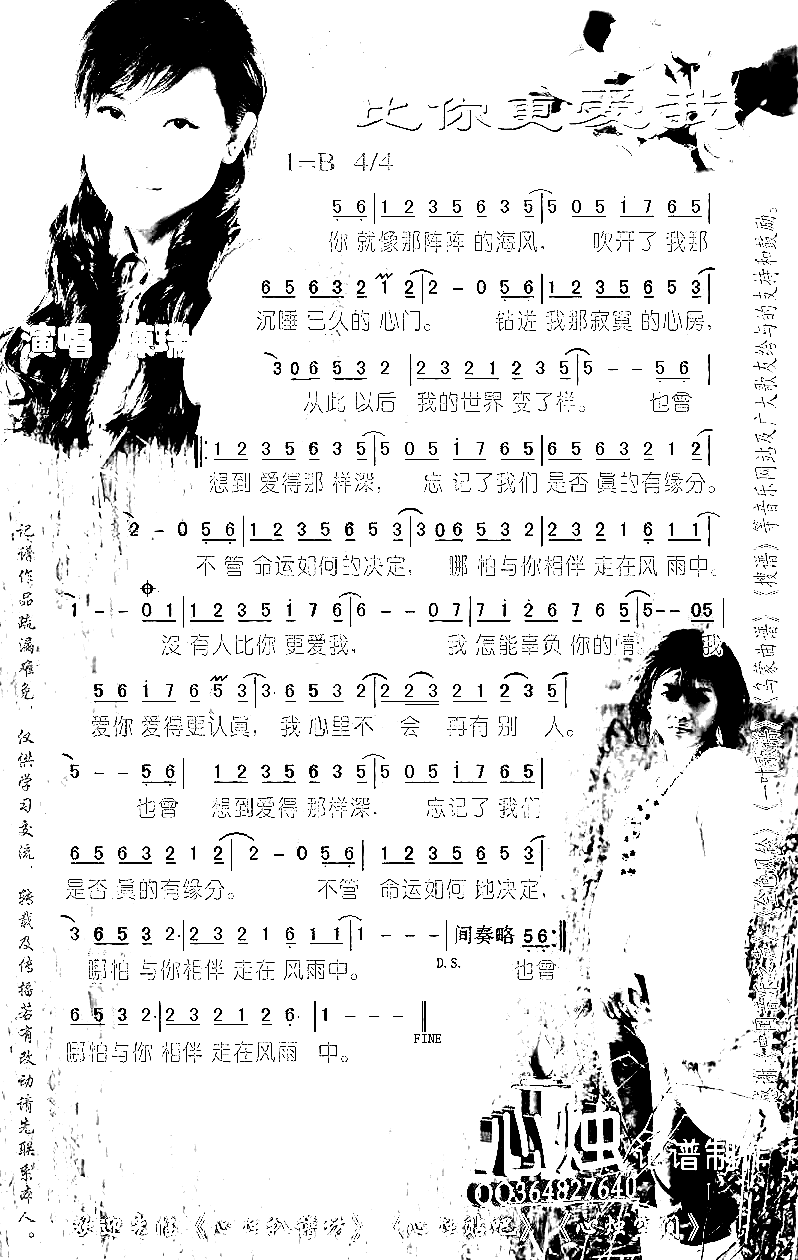 比你更爱我
1=B 4/4
5 6 | 1 2 3 5 6 3 5 | 5 0 5 i 7 6 5 |
你就像那阵阵的海风, 吹开了我那
6 5 6 3 2 1 2 | 2 - 0 5 6 | 1 2 3 5 6 5 3 |
沉睡三久的心门。 钻进我那寂寞的心房,
演唱 陳瑞
3 0 6 5 3 2 | 2 3 2 1 2 3 5 | 5 - - 5 6 |
从此以后 我的世界变了样。 也曾
1 2 3 5 6 3 5 | 5 0 5 i 7 6 5 | 6 5 6 3 2 1 2 |
想到爱得那样深, 忘记了我们是否真的有缘分。
2 - 0 5 6 | 1 2 3 5 6 5 3 | 3 0 6 5 3 2 | 2 3 2 1 6 1 1 |
不管命运如何的决定, 哪怕与你相伴走在风雨中。
1 - - 0 1 | 1 2 3 5 i 7 6 | 6 - - 0 7 | 7 i 2 6 7 6 5 | 5 - - 0 5 |
没有人比你更爱我, 我怎能辜负你的情 我
5 6 i 7 6 5 3 | 3· 6 5 3 2 | 2 2 3 2 1 2 3 5 |
爱你爱得更认真, 我心里不会再有别人。
5 - - 5 6 | 1 2 3 5 6 3 5 | 5 0 5 i 7 6 5 |
也曾 想到爱得那样深, 忘记了我们
6 5 6 3 2 1 2 | 2 - 0 5 6 | 1 2 3 5 6 5 3 |
是否真的有缘分。 不管命运如何地决定,
3 6 5 3 2· | 2 3 2 1 6 1 1 | 1 - - - | 间奏略 5 6 :‖
D.S.
哪怕与你相伴走在风雨中。 也曾
6 5 3 2· | 2 3 2 1 2 6· | 1 - - - ‖
FINE
哪怕与你相伴走在风雨中。
记谱作品疏漏难免, 仅供学习交流, 转载及传播若有改动请先联系本人。
《搜谱》等音乐网站及广大歌友给与的支持和鼓励。
心烛 记谱制作
QQ364827640